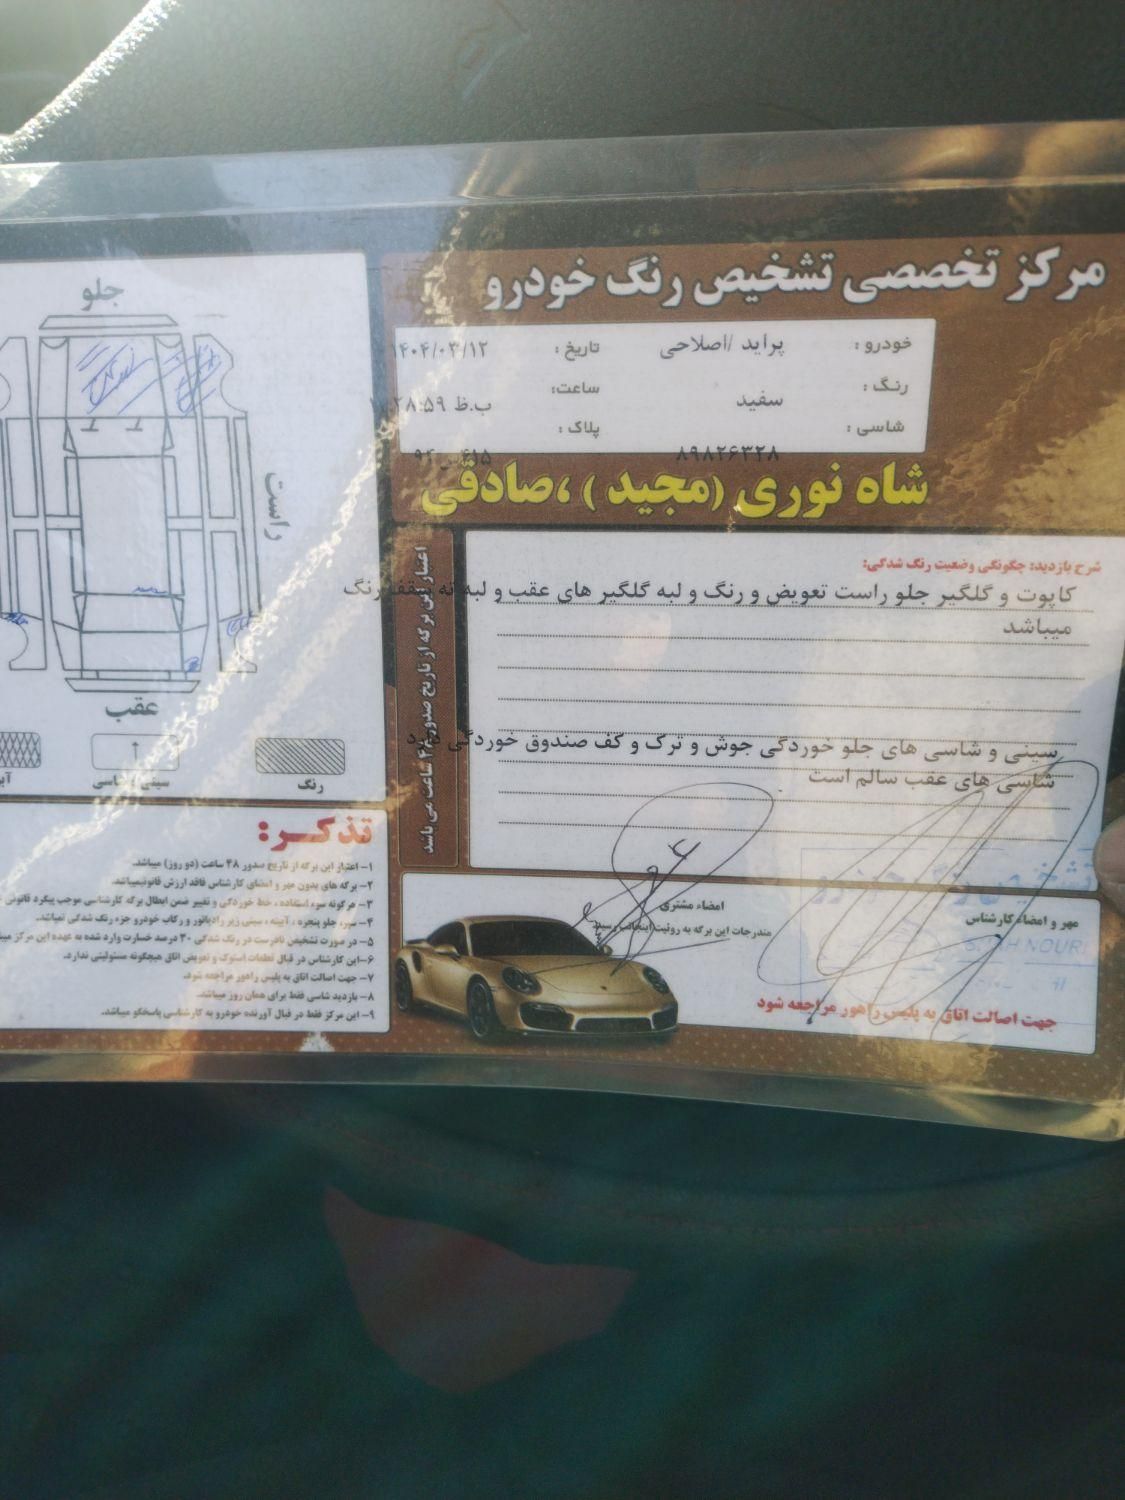 مرکز تخصصی تشخیص رنگ خودرو
خودرو : پراید /اصلاحی تاریخ : ۱۴۰۴/۰۳/۱۲
رنگ : سفید ساعت: ب.ظ
شاسی : ۸۹۸۲۶۳۲۸ پلاک :
شاه نوری (مجید ) ،صادقی
شرح بازدید: چگونگی وضعیت رنگ شدگی:
کاپوت و گلگیر جلو راست تعویض و رنگ و لبه گلگیر های عقب و لبه ته سقف رنگ
میباشد
سینی و شاسی های جلو خوردگی جوش و ترک و کف صندوق خوردگی دارد
شاسی های عقب سالم است
اعتبار این برگه از تاریخ صدور ۴۸ ساعت می باشد
مهر و امضاء کارشناس
امضاء مشتری
مندرجات این برگه به روئیت اینجانب رسید
جهت اصالت اتاق به پلیس راهور مراجعه شود
جلو
راست
عقب
رنگ
سینی شاسی
تذکر:
۱- اعتبار این برگه از تاریخ صدور ۴۸ ساعت (دو روز) میباشد.
۲- برگه های بدون مهر و امضای کارشناس فاقد ارزش قانونیمیباشد.
۳- هرگونه سوء استفاده ، خط خوردگی و تغییر ضمن ابطال برگه کارشناسی موجب پیگرد قانونی
۴- سپر، جلو پنجره ، آیینه ، سینی زیر رادیاتور و رکاب خودرو جزء رنگ شدگی نمیباشد.
۵- در صورت تشخیص نادرست در رنگ شدگی ۳۰ درصد خسارت وارد شده به عهده این مرکز
۶- این کارشناس در قبال قطعات استوک و تعویض اتاق هیچگونه مسئولیتی ندارد.
۷- جهت اصالت اتاق به پلیس راهور مراجعه شود.
۸- بازدید شاسی فقط برای همان روز میباشد.
۹- این مرکز فقط در قبال آورنده خودرو به کارشناسی پاسخگو میباشد.